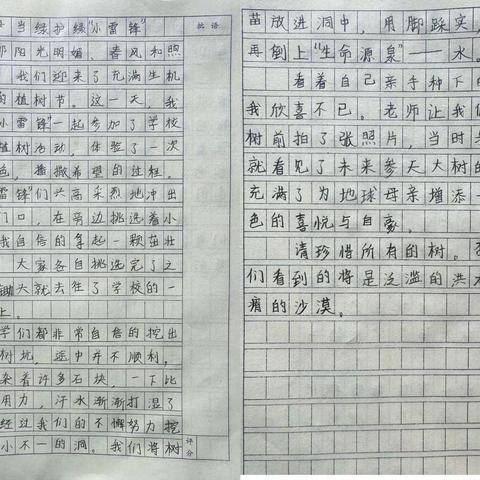 当绿护绿“小雷锋”
批语
阳光明媚、春风和煦
我们迎来了充满生机
的植树节。这一天，我
小雷锋”一起参加了学校
植树活动，体验了一次
色，播撒希望的过程。
雷锋”们兴高采烈地冲出
门口，在旁边挑选着小
我自信的拿起一颗茁壮
大家各自挑选完了之
锄头就去往了学校的一
上。
学们都非常自信的挖出
树坑，途中并不顺利，
杂着许多石块，一下比
用力，汗水渐渐打湿了
经过我们的不懈努力挖
小不一的洞。我们将树
评分
苗放进洞中，用脚踩实，
再倒上“生命源泉”——水。
看着自己亲手种下的
我欣喜不已。老师让我们
树前拍了张照片，当时
就看见了未来参天大树的
充满了为地球母亲增添一
色的喜悦与自豪。
请珍惜所有的树。否
们看到的将是泛滥的洪水
瘠的沙漠。